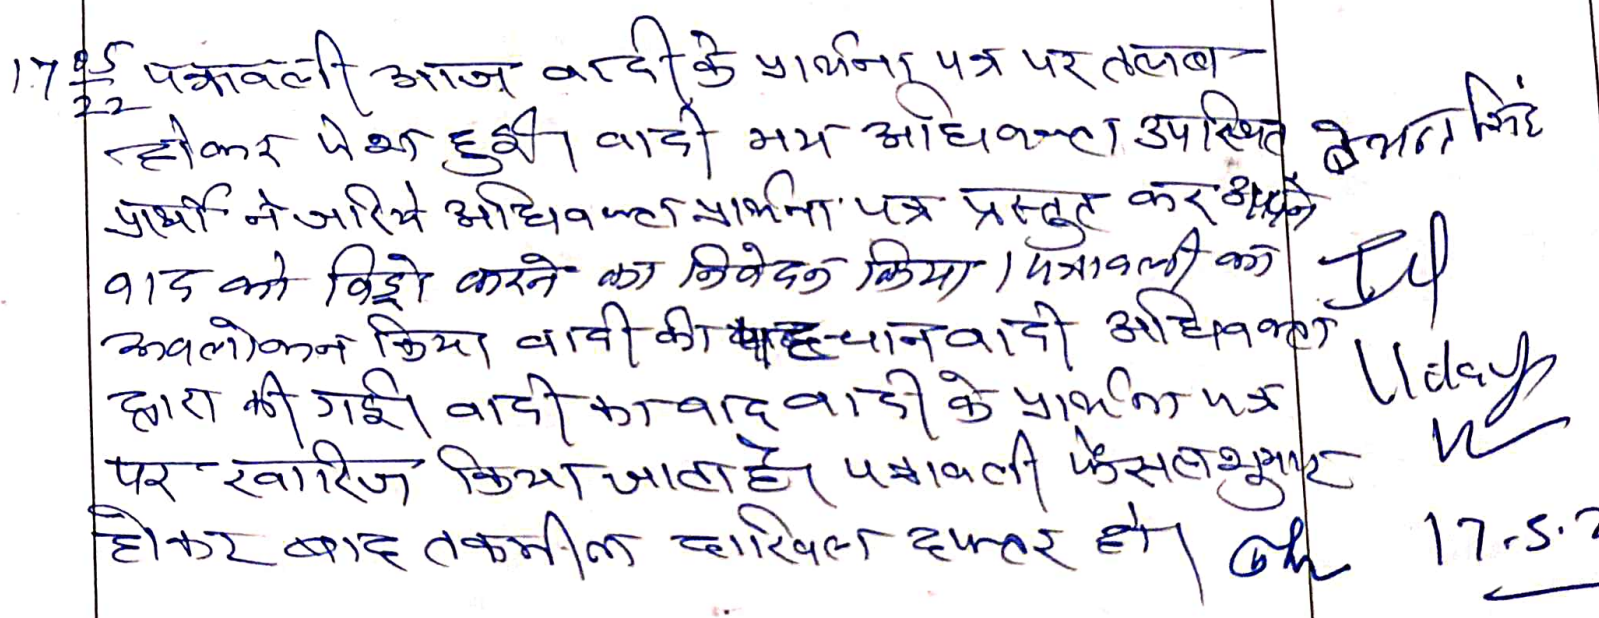 17/05/22 पत्रावली आज वादी के प्रार्थना पत्र पर तलब
होकर पेश हुई। वादी मय अधिवक्ता उपस्थित
प्रार्थी ने जरिये अधिवक्ता प्रार्थना पत्र प्रस्तुत कर अपने
वाद को विड्रो करने का निवेदन किया। पत्रावली का
अवलोकन किया वादी की पहचान वादी अधिवक्ता
द्वारा की गई। वादी का वाद वादी के प्रार्थना पत्र
पर खारिज किया जाता है। पत्रावली फैसल शुमार
होकर बाद तकमील दाखिल दफ्तर हो।
सिंह
Uday
17.5.2